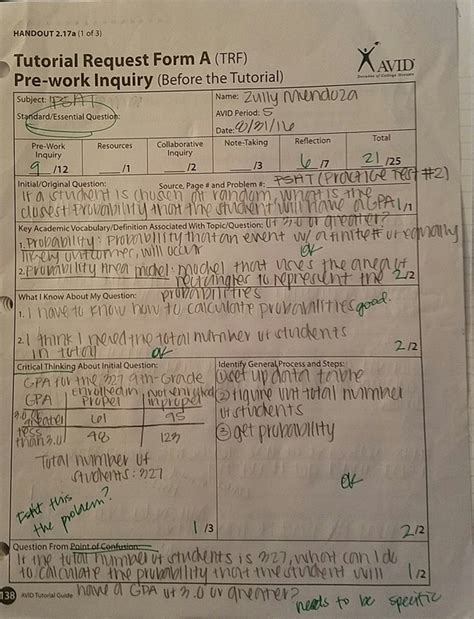 HANDOUT 2.17a (1 of 3)
Tutorial Request Form A (TRF)
Pre-work Inquiry (Before the Tutorial)
AVID
Decades of College Dreams
Subject: PSAT
Name: Zully Mendoza
Standard/Essential Question:
AVID Period: 5
Date: 8/31/16
Pre-Work Inquiry
Resources
Collaborative Inquiry
Note-Taking
Reflection
Total
9 /12
/1
/2
/3
6 /7
21 /25
Initial/Original Question:
Source, Page # and Problem #: PSAT (Practice Test #2)
If a student is chosen at random, what is the
closest probability that the student will have a GPA 1/1
of 3.0 or greater?
Key Academic Vocabulary/Definition Associated With Topic/Question:
1. Probability: probability that an event w/ a finite # of equally
likely outcome, will occur ok
2. Probability Area model: model that uses the area of
rectangles to represent the 2/2
probabilities
What I Know About My Question:
1. I have to know how to calculate probabilities good.
2. I think I need the total number of students
in total ok 2/2
Critical Thinking About Initial Question:
GPA for the 327 9th-Grade
GPA
enrolled in Propel
not enrolled in propel
3.0 or greater 61 95
less than 3.0 48 123
Total number of
students: 327
Isn't this
the problem?
1 /3
Identify General Process and Steps:
① set up data table
② figure out total number
of students
③ get probability
ok
2 /2
Question From Point of Confusion:
If the total number of students is 327, what can I do
to calculate the probability that the student will 1 /2
have a GPA of 3.0 or greater?
needs to be specific
138 AVID Tutorial Guide